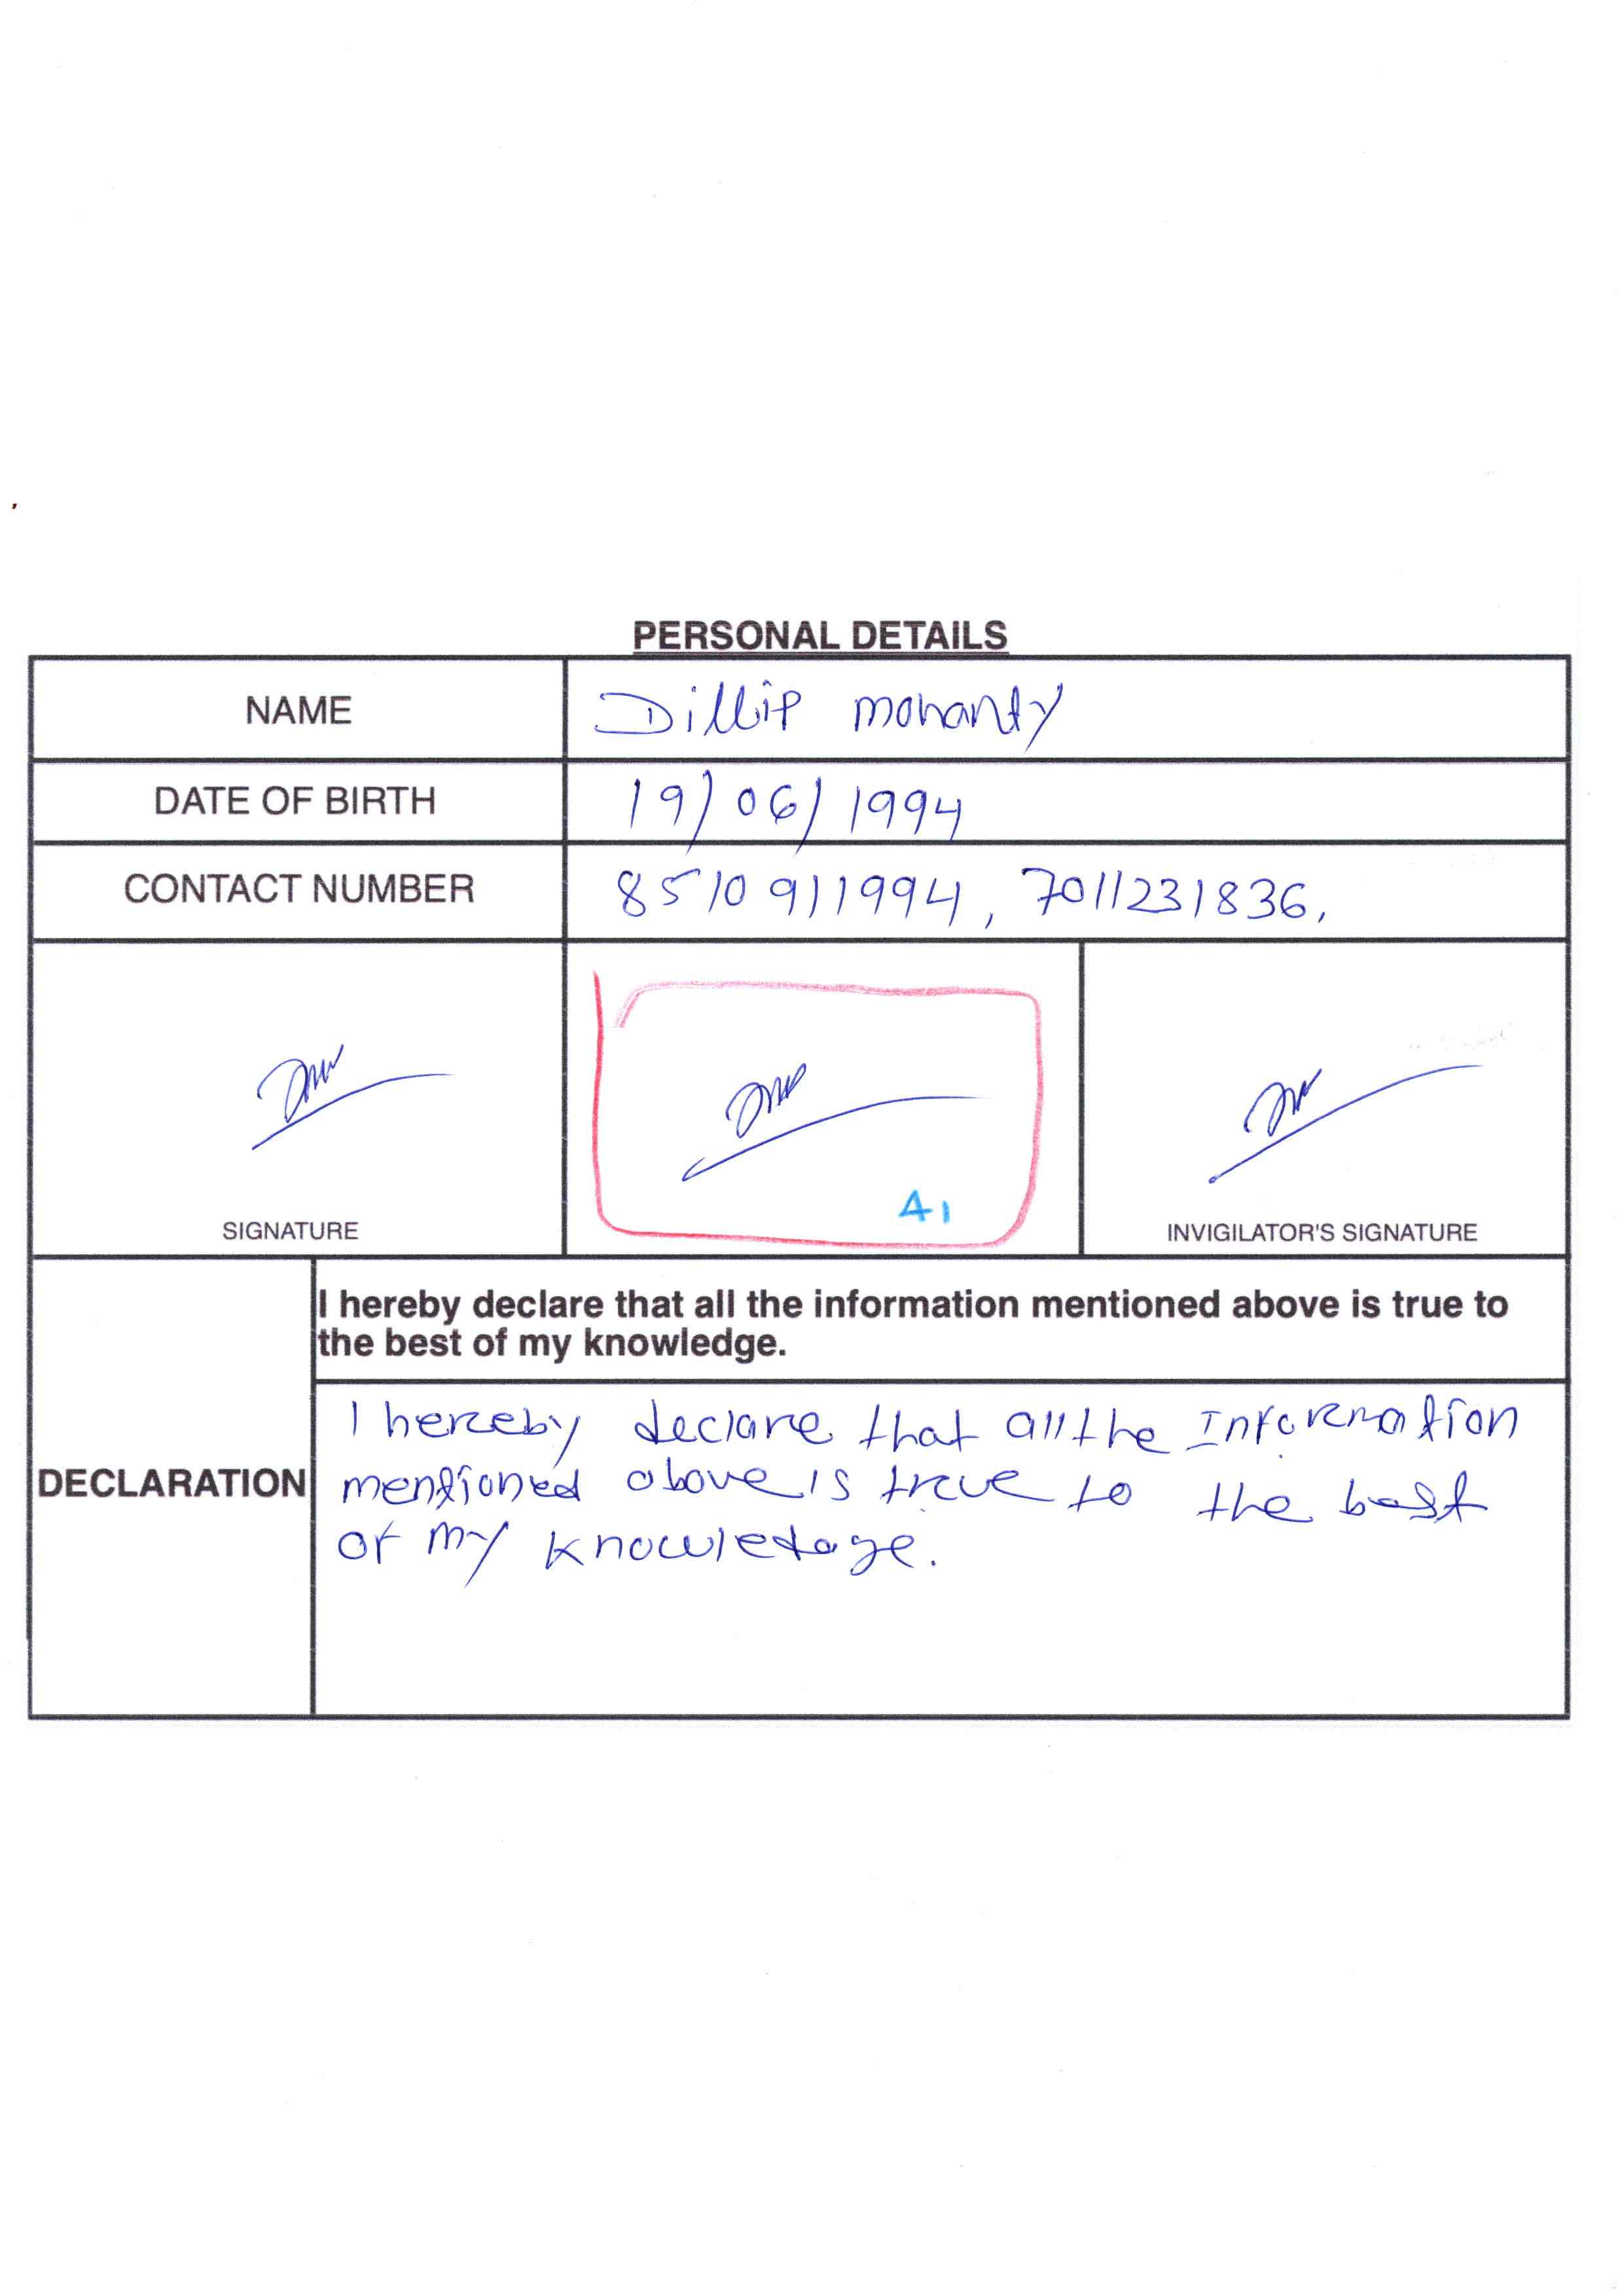 PERSONAL DETAILS
NAME Dillip mohanty
DATE OF BIRTH 19/06/1994
CONTACT NUMBER 8510911994, 7011231836,
41
SIGNATURE INVIGILATOR'S SIGNATURE
I hereby declare that all the information mentioned above is true to
the best of my knowledge.
DECLARATION
I hereby declare that all the Information
mentioned above is true to the best
of my knowledge.